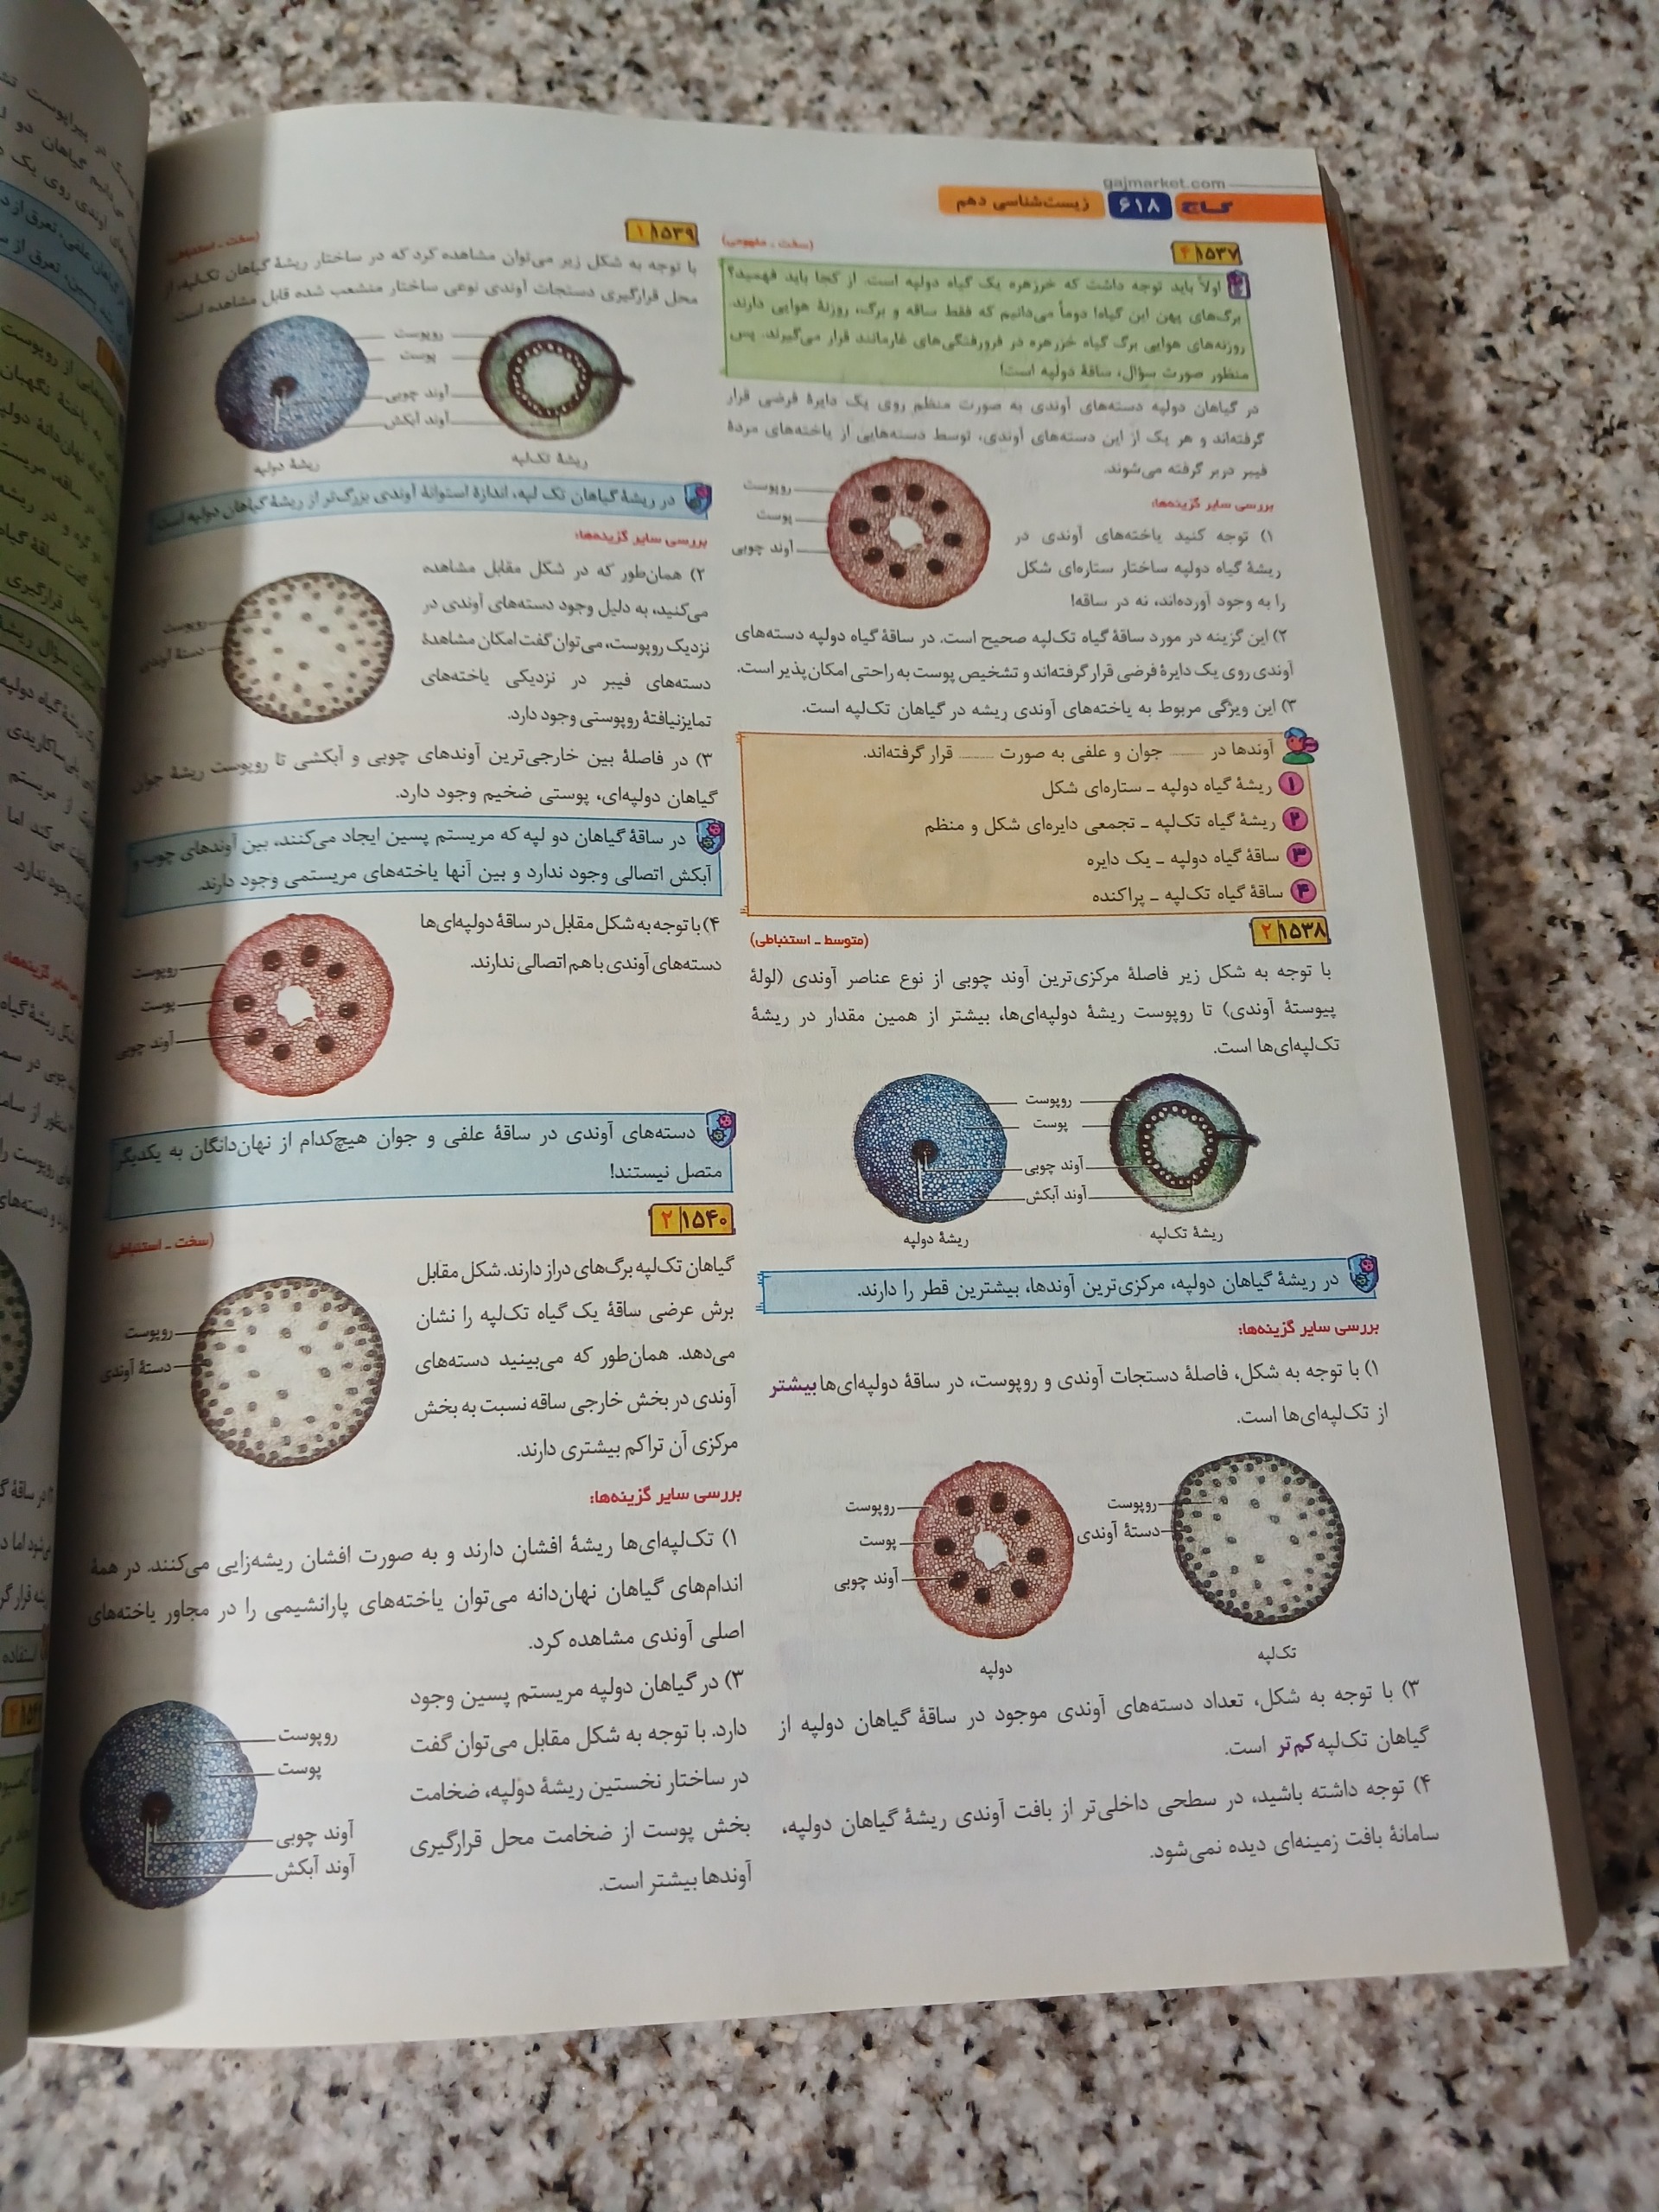 gajmarket.com
گاج ۶۱۸ زیست‌شناسی دهم
۱۵۳۷ ۴ (سخت - مفهومی)
اولاً باید توجه داشت که خرزهره یک گیاه دولپه است. از کجا باید فهمید؟
برگ‌های پهن این گیاه! دوماً می‌دانیم که فقط ساقه و برگ، روزنهٔ هوایی دارند.
روزنه‌های هوایی برگ گیاه خرزهره در فرورفتگی‌های غارمانند قرار می‌گیرند. پس
منظور صورت سؤال، ساقهٔ دولپه است!
در گیاهان دولپه دسته‌های آوندی به صورت منظم روی یک دایرهٔ فرضی قرار
گرفته‌اند و هر یک از این دسته‌های آوندی، توسط دسته‌هایی از یاخته‌های مردهٔ
فیبر دربر گرفته می‌شوند.
روپوست
پوست
آوند چوبی
بررسی سایر گزینه‌ها:
۱) توجه کنید یاخته‌های آوندی در
ریشهٔ گیاه دولپه ساختار ستاره‌ای شکل
را به وجود آورده‌اند، نه در ساقه!
۲) این گزینه در مورد ساقهٔ گیاه تک‌لپه صحیح است. در ساقهٔ گیاه دولپه دسته‌های
آوندی روی یک دایرهٔ فرضی قرار گرفته‌اند و تشخیص پوست به راحتی امکان‌پذیر است.
۳) این ویژگی مربوط به یاخته‌های آوندی ریشه در گیاهان تک‌لپه است.
آوندها در ........ جوان و علفی به صورت ........ قرار گرفته‌اند.
۱ ریشهٔ گیاه دولپه - ستاره‌ای شکل
۲ ریشهٔ گیاه تک‌لپه - تجمعی دایره‌ای شکل و منظم
۳ ساقهٔ گیاه دولپه - یک دایره
۴ ساقهٔ گیاه تک‌لپه - پراکنده
۱۵۳۸ ۲ (متوسط - استنباطی)
با توجه به شکل زیر فاصلهٔ مرکزی‌ترین آوند چوبی از نوع عناصر آوندی (لولهٔ
پیوستهٔ آوندی) تا روپوست ریشهٔ دولپه‌ای‌ها، بیشتر از همین مقدار در ریشهٔ
تک‌لپه‌ای‌ها است.
روپوست
پوست
آوند چوبی
آوند آبکش
ریشهٔ تک‌لپه
ریشهٔ دولپه
در ریشهٔ گیاهان دولپه، مرکزی‌ترین آوندها، بیشترین قطر را دارند.
بررسی سایر گزینه‌ها:
۱) با توجه به شکل، فاصلهٔ دستجات آوندی و روپوست، در ساقهٔ دولپه‌ای‌ها بیشتر
از تک‌لپه‌ای‌ها است.
روپوست
دستهٔ آوندی
تک‌لپه
روپوست
پوست
آوند چوبی
دولپه
۳) با توجه به شکل، تعداد دسته‌های آوندی موجود در ساقهٔ گیاهان دولپه از
گیاهان تک‌لپه کم‌تر است.
۴) توجه داشته باشید، در سطحی داخلی‌تر از بافت آوندی ریشهٔ گیاهان دولپه،
سامانهٔ بافت زمینه‌ای دیده نمی‌شود.
۱۵۳۹ ۱ (سخت - استنباطی)
با توجه به شکل زیر می‌توان مشاهده کرد که در ساختار ریشهٔ گیاهان تک‌لپه، از
محل قرارگیری دستجات آوندی نوعی ساختار منشعب شده قابل مشاهده است.
روپوست
پوست
آوند چوبی
آوند آبکش
ریشهٔ تک‌لپه
ریشهٔ دولپه
در ریشهٔ گیاهان تک لپه، اندازهٔ استوانهٔ آوندی بزرگ‌تر از ریشهٔ گیاهان دولپه است.
بررسی سایر گزینه‌ها:
۲) همان‌طور که در شکل مقابل مشاهده
می‌کنید، به دلیل وجود دسته‌های آوندی در
نزدیک روپوست، می‌توان گفت امکان مشاهدهٔ
دسته‌های فیبر در نزدیکی یاخته‌های
تمایزنیافتهٔ روپوستی وجود دارد.
روپوست
دستهٔ آوندی
۳) در فاصلهٔ بین خارجی‌ترین آوندهای چوبی و آبکشی تا روپوست ریشهٔ جوان
گیاهان دولپه‌ای، پوستی ضخیم وجود دارد.
در ساقهٔ گیاهان دو لپه که مریستم پسین ایجاد می‌کنند، بین آوندهای چوب و
آبکش اتصالی وجود ندارد و بین آنها یاخته‌های مریستمی وجود دارند.
۴) با توجه به شکل مقابل در ساقهٔ دولپه‌ای‌ها
دسته‌های آوندی با هم اتصالی ندارند.
روپوست
پوست
آوند چوبی
دسته‌های آوندی در ساقهٔ علفی و جوان هیچ‌کدام از نهان‌دانگان به یکدیگر
متصل نیستند!
۱۵۴۰ ۲ (سخت - استنباطی)
گیاهان تک‌لپه برگ‌های دراز دارند. شکل مقابل
برش عرضی ساقهٔ یک گیاه تک‌لپه را نشان
می‌دهد. همان‌طور که می‌بینید دسته‌های
آوندی در بخش خارجی ساقه نسبت به بخش
مرکزی آن تراکم بیشتری دارند.
روپوست
دستهٔ آوندی
بررسی سایر گزینه‌ها:
۱) تک‌لپه‌ای‌ها ریشهٔ افشان دارند و به صورت افشان ریشه‌زایی می‌کنند. در همهٔ
اندام‌های گیاهان نهان‌دانه می‌توان یاخته‌های پارانشیمی را در مجاور یاخته‌های
اصلی آوندی مشاهده کرد.
۳) در گیاهان دولپه مریستم پسین وجود
دارد. با توجه به شکل مقابل می‌توان گفت
در ساختار نخستین ریشهٔ دولپه، ضخامت
بخش پوست از ضخامت محل قرارگیری
آوندها بیشتر است.
روپوست
پوست
آوند چوبی
آوند آبکش